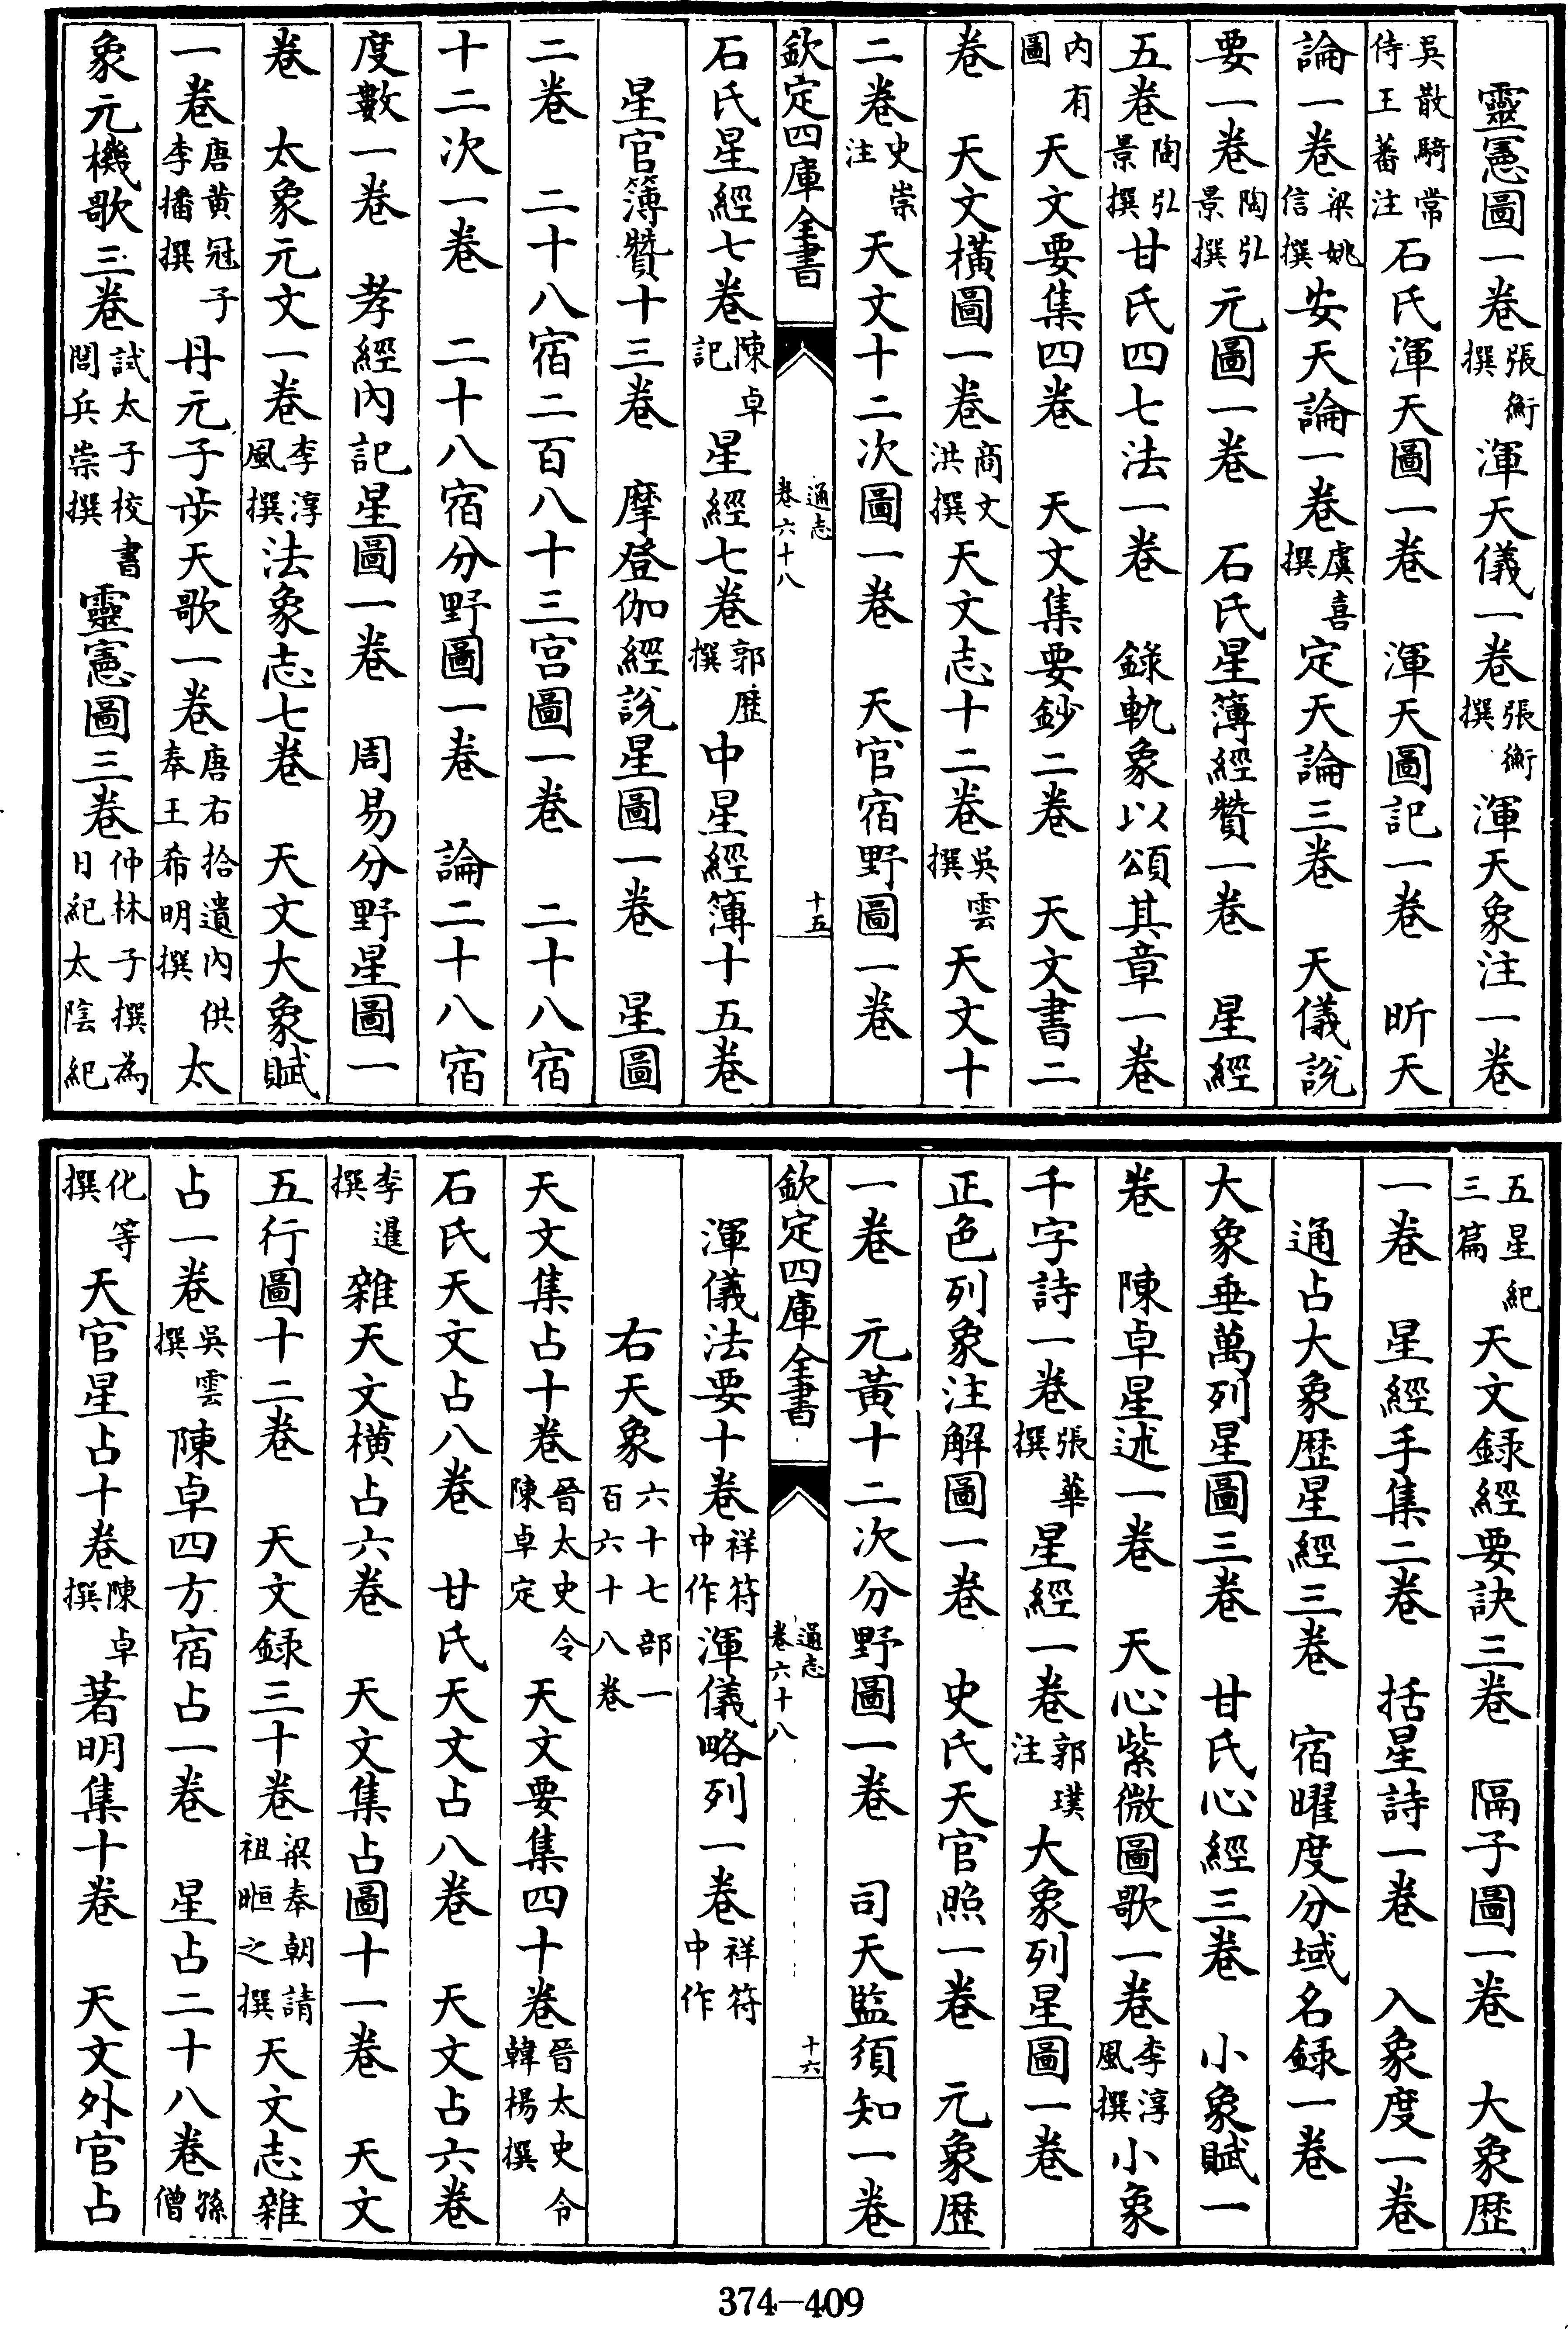 靈憲圖一卷張衡撰渾天儀一卷張衡撰渾天象注一卷
吳散騎常侍王蕃注石氏渾天圖一卷　渾天圖記一卷　昕天
論一卷梁姚信撰安天論一卷虞喜撰定天論三卷　天儀說
要一卷陶弘景撰元圖一卷　石氏星簿經贊一卷　星經
五卷陶弘景撰甘氏四七法一卷　錄軌象以頌其章一卷
內有圖天文要集四卷　天文集要鈔二卷　天文書二
卷　天文橫圖一卷商文洪撰天文志十二卷吳雲撰天文十
二卷史崇注天文十二次圖一卷　天官宿野圖一卷
欽定四庫全書　通志卷六十八　十五
石氏星經七卷陳卓記星經七卷郭歷撰中星經簿十五卷
星官簿贊十三卷　摩登伽經說星圖一卷　星圖
二卷　二十八宿二百八十三宫圖一卷　二十八宿
十二次一卷　二十八宿分野圖一卷　論二十八宿
度數一卷　孝經內記星圖一卷　周易分野星圖一
卷　太象元文一卷李淳風撰法象志七卷　天文大象賦
一卷唐黄冠子李播撰丹元子步天歌一卷唐右拾遺內供奉王希明撰太
象元機歌三卷試太子校書閭兵崇撰靈憲圖三卷仲林子撰為日紀太陰紀
五星紀三篇天文録經要訣三卷　隔子圖一卷　大象歴
一卷　星經手集二卷　括星詩一卷　入象度一卷
通占大象歴星經三卷　宿曜度分域名録一卷
大象垂萬列星圖三卷　甘氏心經三卷　小象賦一
卷　陳卓星述一卷　天心紫微圖歌一卷李淳風撰小象
千字詩一卷張華撰星經一卷郭璞注大象列星圖一卷
正色列象注解圖一卷　史氏天官照一卷　元象歴
一卷　元黃十二次分野圖一卷　司天監須知一卷
欽定四庫全書　通志卷六十八　十六
渾儀法要十卷祥符中作渾儀略列一卷祥符中作
右天象六十七部一百六十八卷
天文集占十卷晉太史令陳卓定天文要集四十卷晉太史令韓楊撰
石氏天文占八卷　甘氏天文占八卷　天文占六卷
李暹撰雜天文横占六卷　天文集占圖十一卷　天文
五行圖十二卷　天文録三十卷梁奉朝請祖暅之撰天文志雜
占一卷吳雲撰陳卓四方宿占一卷　星占二十八卷孫僧
化等撰天官星占十卷陳卓撰著明集十卷　天文外官占
374—409